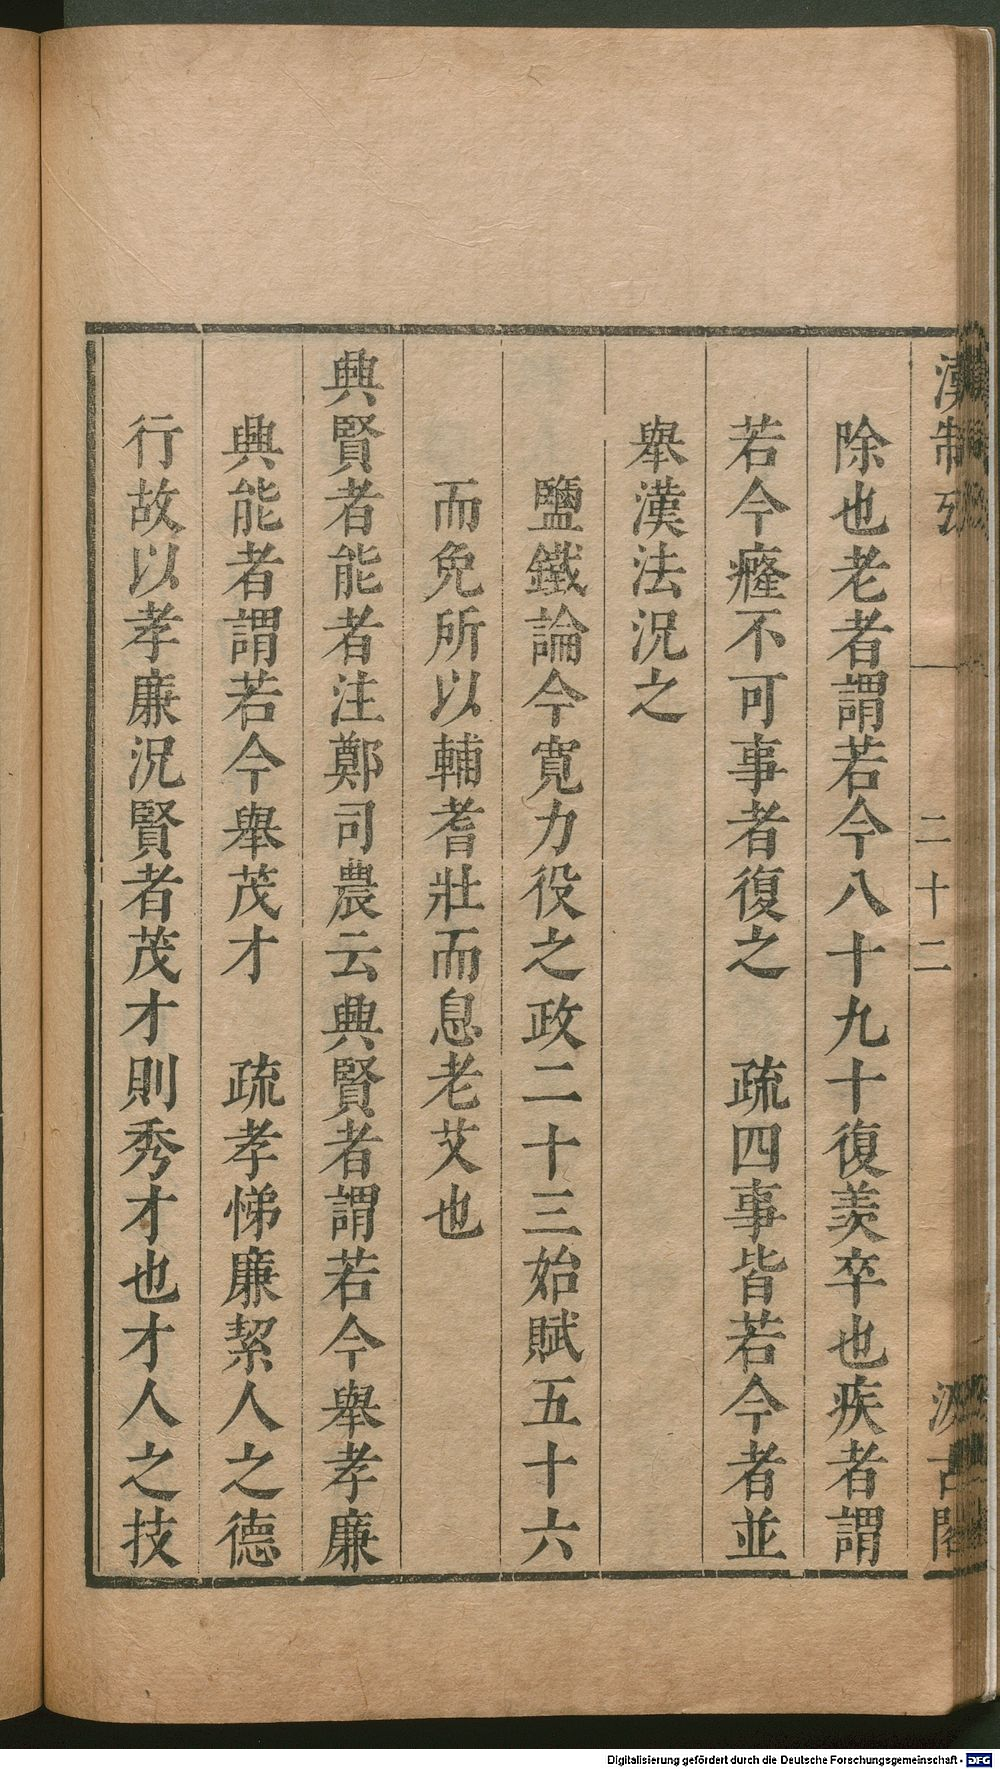 漢制攷
二十二
汲古閣
除也老者謂若今八十九十復羨卒也疾者謂
若今癃不可事者復之　疏四事皆若今者並
舉漢法況之
鹽鐵論今寬力役之政二十三始賦五十六
而免所以輔耆壯而息老艾也
興賢者能者注鄭司農云興賢者謂若今舉孝廉
興能者謂若今舉茂才　疏孝悌廉絜人之德
行故以孝廉況賢者茂才則秀才也才人之技
Digitalisierung gefördert durch die Deutsche Forschungsgemeinschaft - DFG